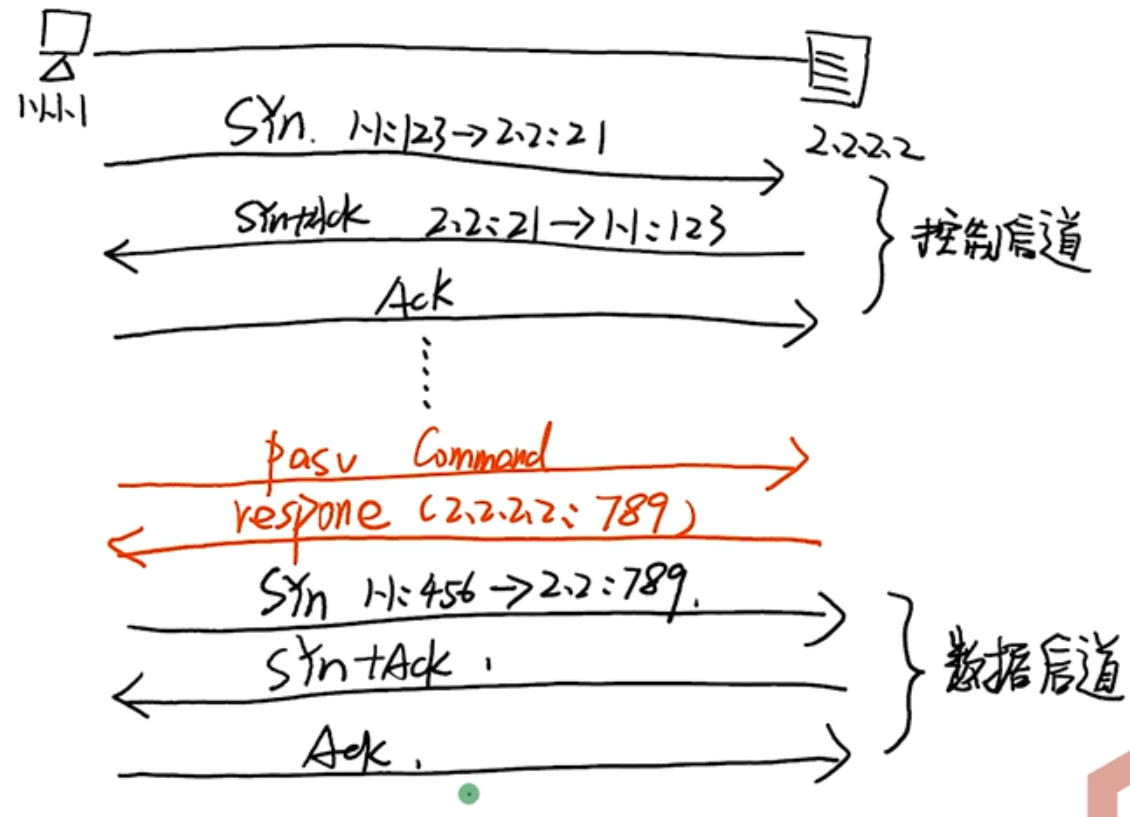 1.1.1.1
2.2.2.2
SYn. 1.1:123→2.2:21
SYn+Ack 2.2:21→1.1:123
控制信道
Ack
pasv Command
respone (2.2.2.2:789)
SYn 1.1:456→2.2:789.
SYn+Ack.
数据信道
Ack.